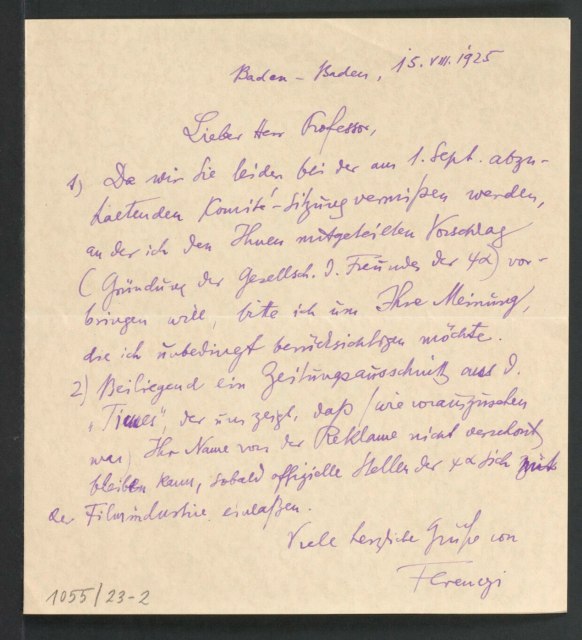 Baden-Baden, 15. VIII. 1925
Lieber Herr Professor,
1) Da wir Sie leider bei der am 1. Sept. abzu-
haltenden Komité-Sitzung vermißen werden,
an der ich den Ihnen mitgeteilten Vorschlag
(Gründung der Gesellsch. d. Freunde der ψα) vor-
bringen will, bitte ich um Ihre Meinung,
die ich unbedingt berücksichtigen möchte.
2) Beiliegend ein Zeitungsausschnitt aus d.
„Times", der uns zeigt, daß (wie vorauszusehen
war) Ihr Name von der Reklame nicht verschont
bleiben kann, sobald offizielle Stellen der ψα sich mit
der Filmindustrie einlaßen.
Viele herzliche Grüße von
Ferenczi
1055/23-2